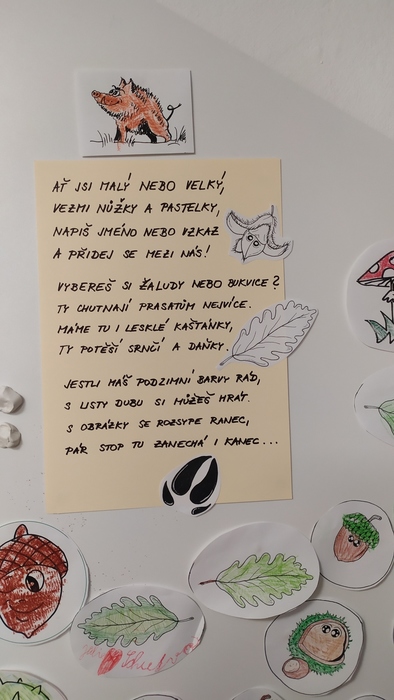 AŤ JSI MALÝ NEBO VELKÝ,
VEZMI NŮŽKY A PASTELKY,
NAPIŠ JMÉNO NEBO VZKAZ
A PŘIDEJ SE MEZI NÁS!
VYBEREŠ SI ŽALUDY NEBO BUKVICE?
TY CHUTNAJÍ PRASATŮM NEJVÍCE.
MÁME TU I LESKLÉ KAŠTÁNKY,
TY POTĚŠÍ SRNČÍ A DAŇKY.
JESTLI MÁŠ PODZIMNÍ BARVY RÁD,
S LISTY DUBU SI MŮŽEŠ HRÁT.
S OBRÁZKY SE ROZSYPE RANEC,
PÁR STOP TU ZANECHÁ I KANEC...